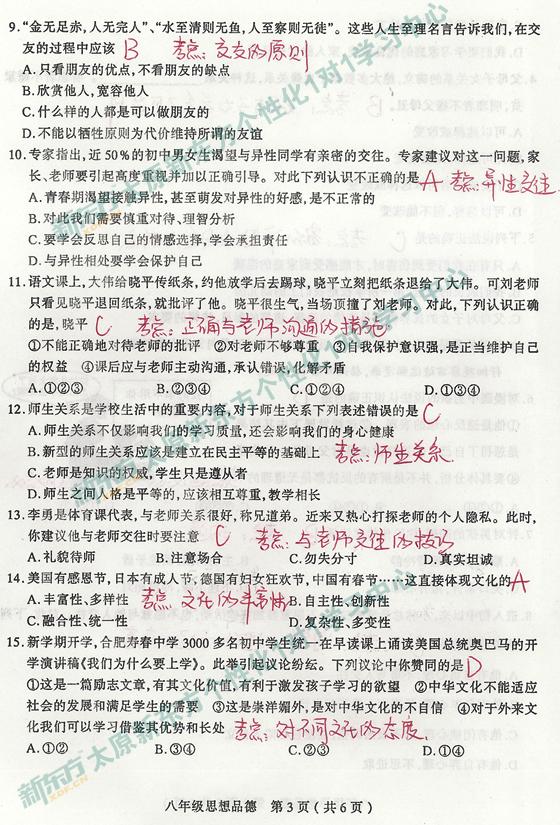 9.“金无足赤，人无完人”、“水至清则无鱼，人至察则无徒”。这些人生至理名言告诉我们，在交
友的过程中应该 B 考点：交友的原则
A.只看朋友的优点，不看朋友的缺点
B.欣赏他人，宽容他人
C.什么样的人都是可以做朋友的
D.不能以牺牲原则为代价维持所谓的友谊
10.专家指出，近50%的初中男女生渴望与异性同学有亲密的交往。专家建议对这一问题，家
长、老师要引起高度重视并加以正确引导。对此下列认识不正确的是 A 考点：异性交往
A.青春期渴望接触异性，甚至萌发对异性的好感，是不正常的
B.对此我们需要慎重对待、理智分析
C.要学会反思自己的情感选择，学会承担责任
D.与异性相处要学会保护自己
11.语文课上，大伟给晓平传纸条，约他放学后去踢球，晓平立刻把纸条退给了大伟。可刘老师
只看见晓平退回纸条，就批评了他。晓平很生气，当场顶撞了刘老师。对此，下列认识正确
的是，晓平 C 考点：正确与老师沟通的措施
①不能正确地对待老师的批评 ②对老师不够尊重 ③自我保护意识强，是正当维护自己
的权益 ④课后应与老师主动沟通，承认错误，化解矛盾
A.①②③ B.②③④ C.①②④ D.①③④
12.师生关系是学校生活中的重要内容，对于师生关系下列表述错误的是 C
A.师生关系不仅影响我们的学习质量，还会影响我们的身心健康
B.新型的师生关系应该是建立在民主平等的基础上 考点：师生关系
C.老师是知识的权威，学生只是遵从者
D.师生之间人格是平等的，应该相互尊重，教学相长
13.李勇是体育课代表，与老师关系很好，称兄道弟。近来又热心打探老师的个人隐私。此时，
你建议他与老师交往时要注意 C 考点：与老师交往的技巧
A.礼貌待师 B.注意场合 C.勿失分寸 D.真实坦诚
14.美国有感恩节，日本有成人节，德国有妇女狂欢节，中国有春节……这直接体现文化的 A
A.丰富性、多样性 考点：文化的丰富性 B.自主性、创新性
C.融合性、统一性 D.复杂性、多变性
15.新学期开学，合肥寿春中学3000多名初中学生统一在早读课上诵读美国总统奥巴马的开
学演讲稿《我们为什么要上学》。此举引起议论纷纭。下列议论中你赞同的是 D
①这是一篇励志文章，有其文化价值，有利于激发孩子学习的欲望 ②中华文化不能适应
社会的发展和满足学生的需要 ③这是崇洋媚外，是对中华文化的不自信 ④对于外来文
化我们可以学习借鉴其优势和长处 考点：对不同文化的态度
A.①② B.③④ C.②③ D.①④
新东方太原新东方个性化1对1学习中心
八年级思想品德 第3页(共6页)